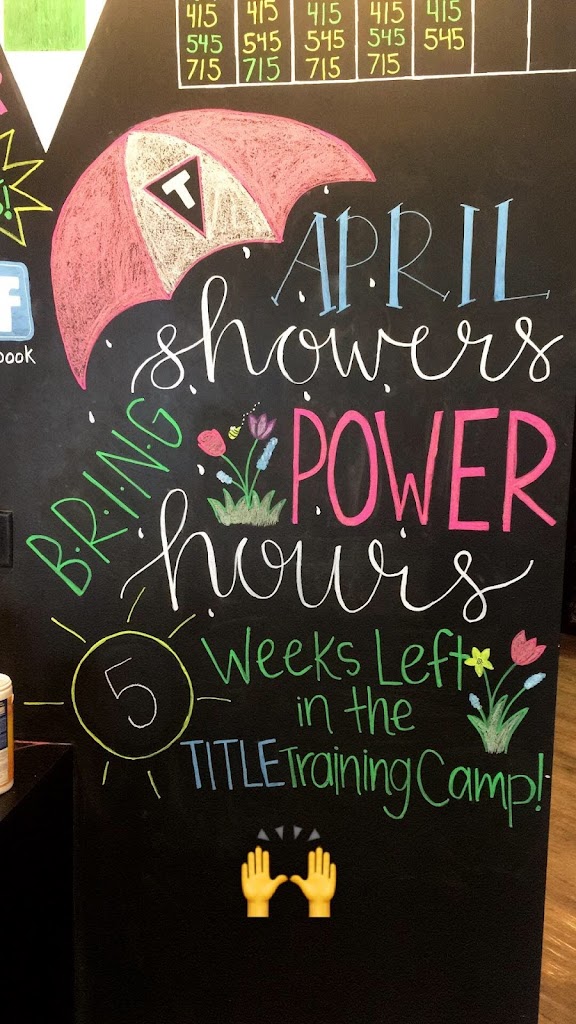 415 415 415 415 415
545 545 545 545 545
715 715 715 715
T
APRIL
showers
f
book
B·R·I·N·G
POWER
hours
5
Weeks Left
in the
TITLE Training Camp!